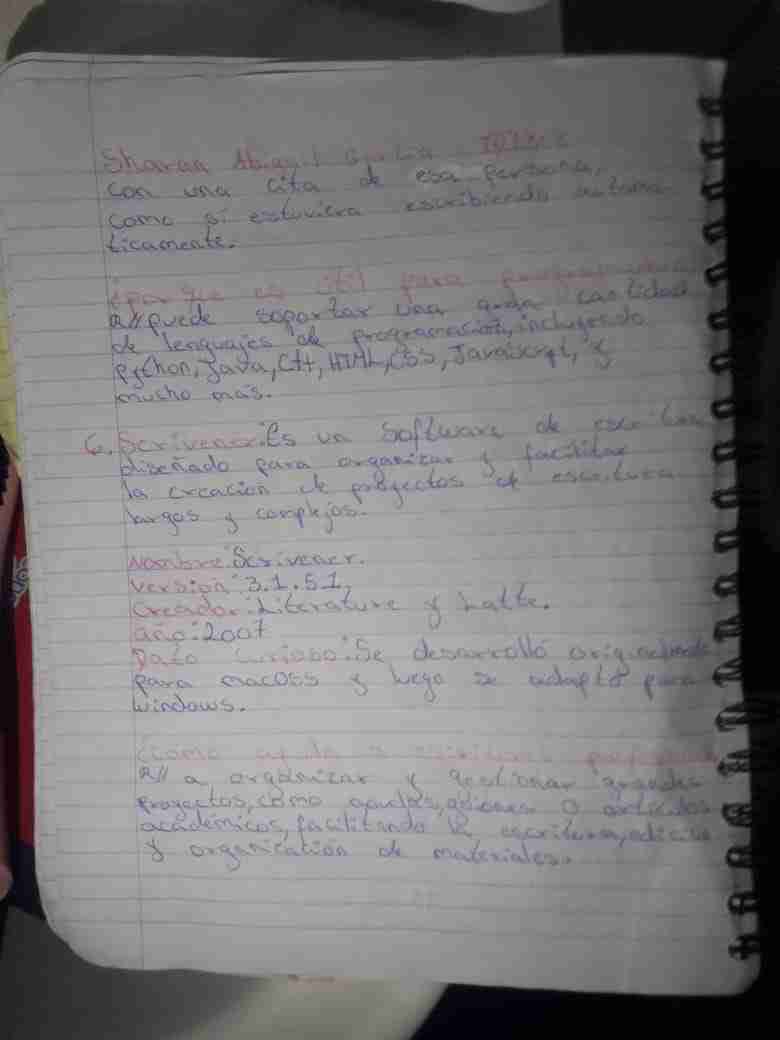 Sharon Abigail Garcia
con una cita de esa persona,
como si estuviera escribiendo automa
ticamente.
¿porque es útil para programadores
R// puede soportar una gran cantidad
de lenguajes de programación, incluyendo
python, Java, C++, HTML, CSS, JavaScript, y
mucho más.
6. Scrivener: Es un Software de escritura
diseñado para organizar y facilitar
la creación de proyectos de escritura
largos y complejos.
Nombre: Scrivener.
Versión: 3.1.5.1,
Creador: Literature y Latte.
año: 2007
Dato curioso: Se desarrolló
para macOSS y luego se adaptó para
windows.
¿Cómo ayuda a
R// a organizar y gestionar grandes
proyectos, como o artículos
académicos, facilitando la escritura, edición
y organización de materiales.